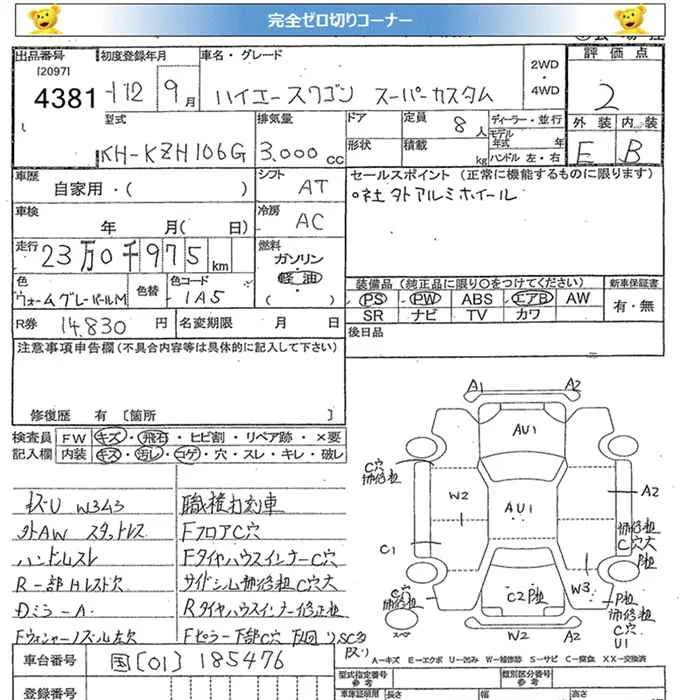 完全ゼロ切りコーナー
出品番号 初度登録年月 車名・グレード 評価点
[2097]
4381 H12 9月 ハイエースワゴン スーパーカスタム 2WD・4WD 2
型式 排気量 ドア 定員 8人 ディーラー・並行 外装 内装
KH-KZH106G 3.000cc 形状 積載 kg モデル年式 年 ハンドル 左・右 E B
車歴 シフト セールスポイント(正常に機能するものに限ります)
自家用・( ) AT 社外アルミホイール
車検 冷房
年 月日( ) AC
走行 燃料
23万0千975km ガソリン
色 色替 色コード 軽油
ウォームグレーパールM 1A5 ( )
装備品(純正品に限り○をつけてください) 新車保証書
PS PW ABS エアB AW 有・無
SR ナビ TV カワ
R券 14.830円 名変期限 月 日
後日品
注意事項申告欄(不具合内容等は具体的に記入して下さい)
修復歴 有 [箇所 ]
検査員 FW キズ・飛石・ヒビ割・リペア跡・×要
記入欄 内装 キズ・汚レ・コゲ・穴・スレ・キレ・破レ
キズU W3ケ3 職権打刻車
外AW スタッドレス FフロアC穴
ハンドルスレ FタイヤハウスインナーC穴
R一部Hレスト欠 サイドシル補修粗C穴大
DミラーA Rタイヤハウスインナー修正粗
Fウォッシャーノズル左欠 Fピラー下部C穴 下回りSC多
A1 A2
AU1
C穴
補修粗
W2 AU1 A2
補修粗
C穴大
P粗
C1
W3
C穴
補修粗
C2P粗
P粗
C穴
U1
スペ
W2 A2
A-キズ E-エクボ U-凹み W-補修跡 S-サビ C-腐食 XX-交換済
車台番号 国[01]185476
型式指定番号 類別区分番号
登録番号 車庫証明用 長さ 幅 高さ